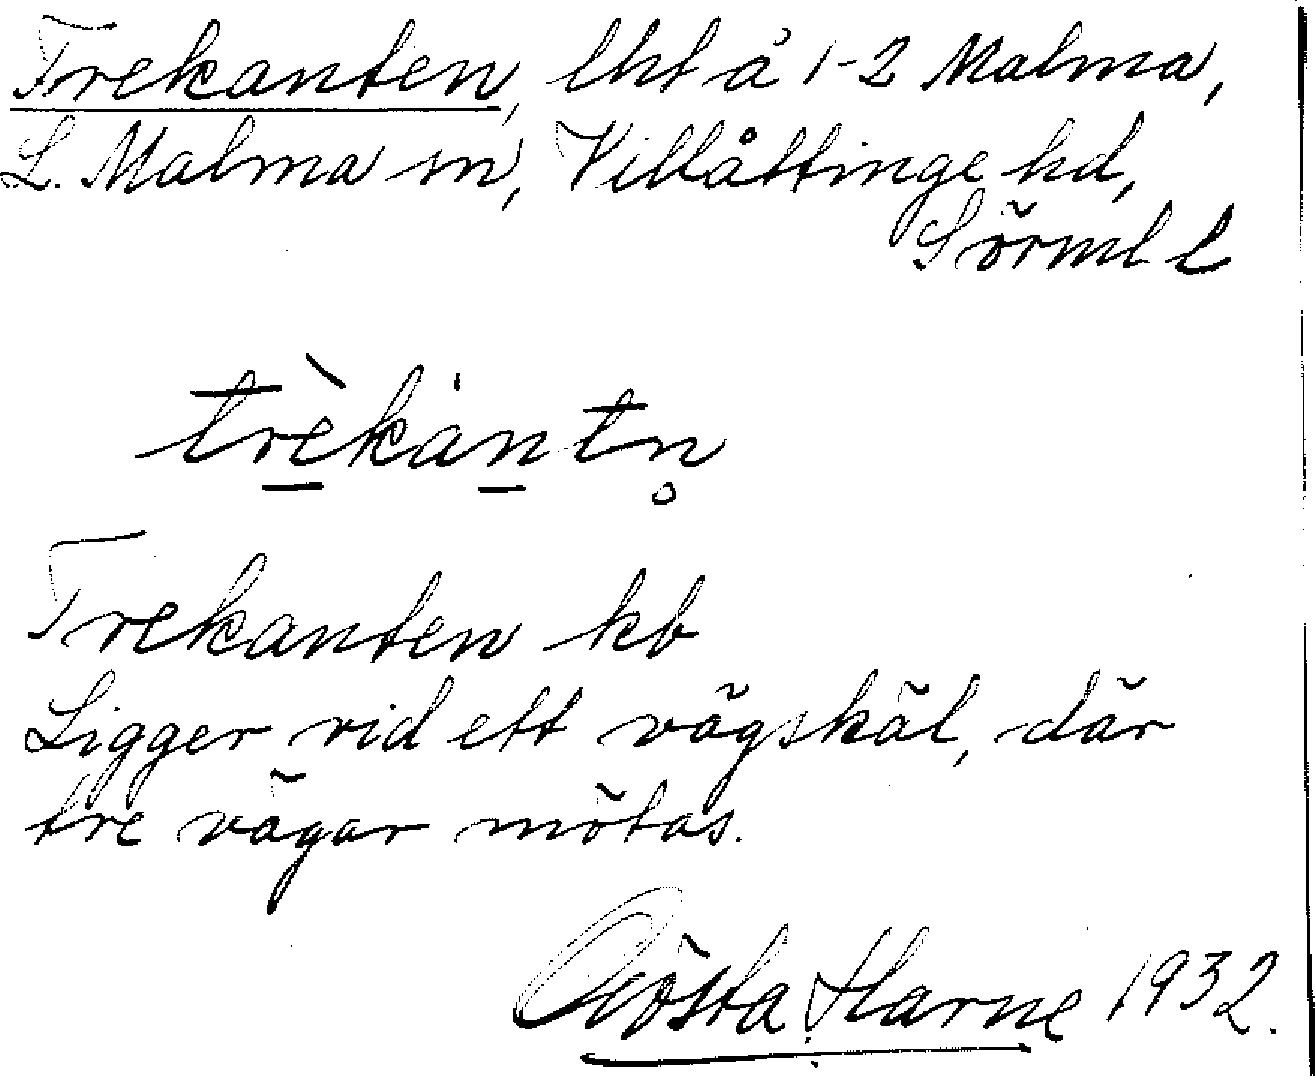 Trekanten, lht å 1-2 Malma,
L. Malma sn, Villåttinge hd,
Sörml l
trèkán tn̥
Trekanten kb
Ligger vid ett vägskäl, där
tre vägar mötas.
Gösta Harne 1932.